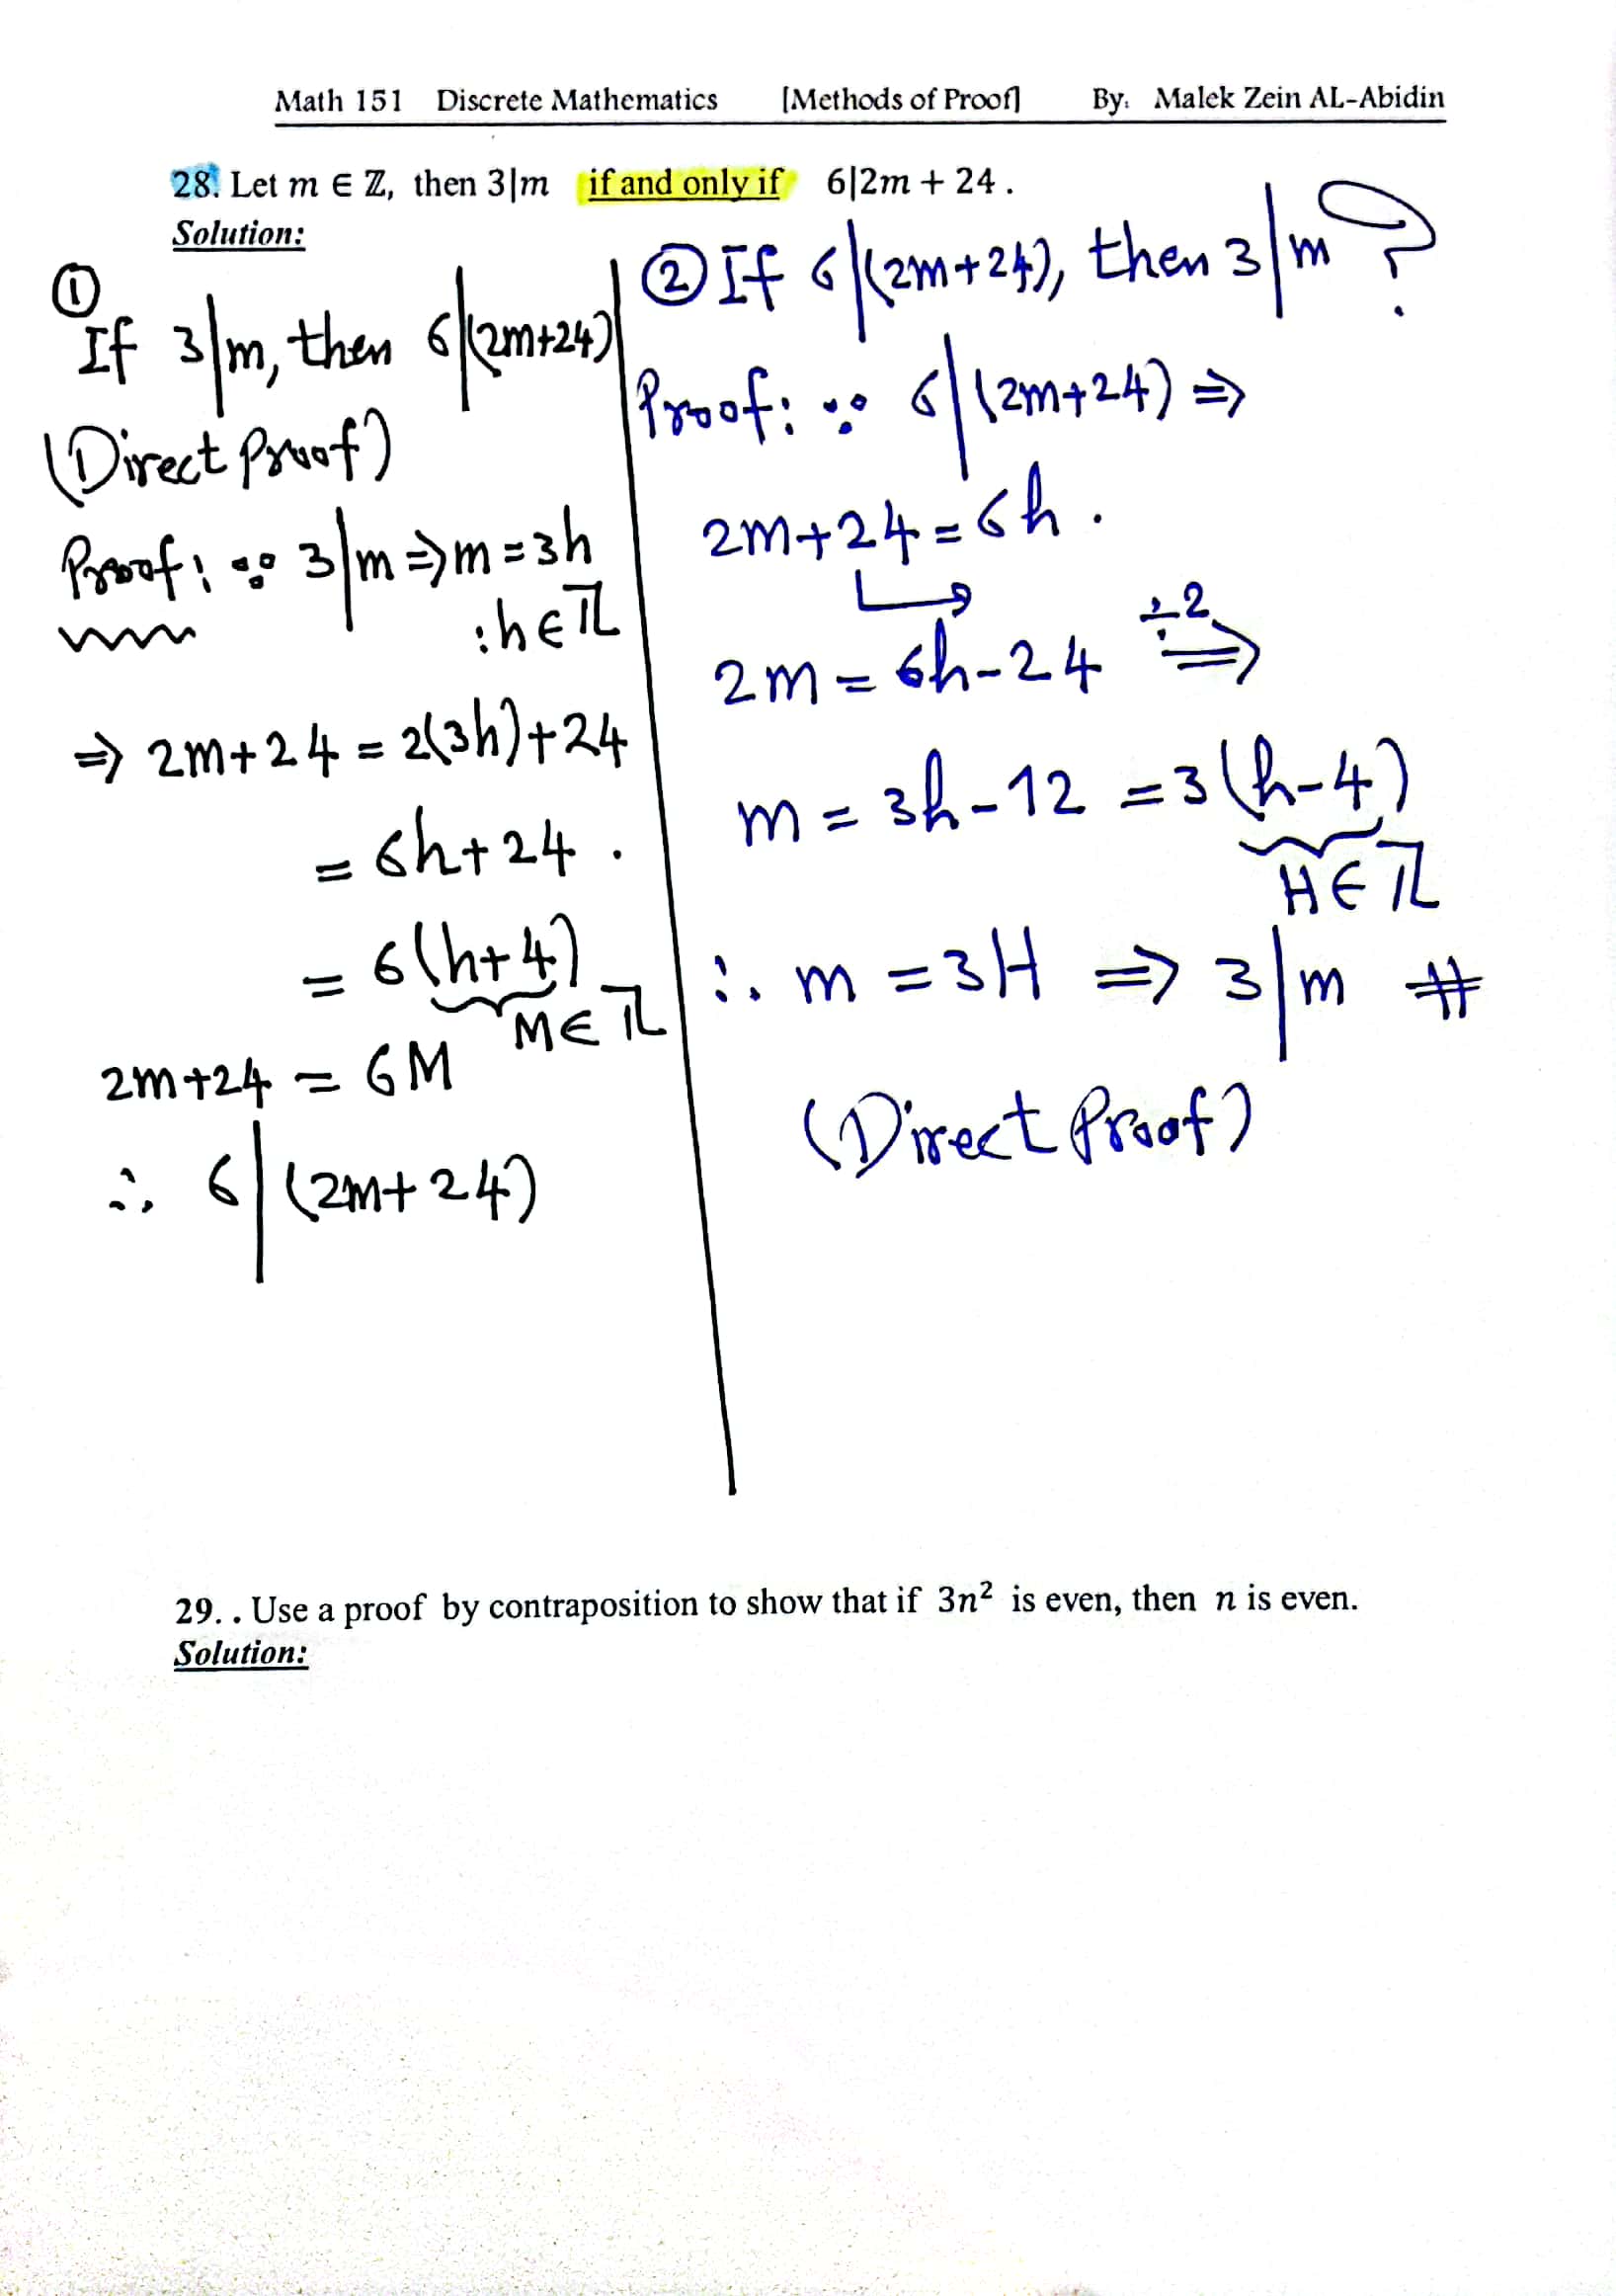 Math 151 Discrete Mathematics [Methods of Proof] By: Malek Zein AL-Abidin
28. Let m ∈ ℤ, then 3|m if and only if 6|2m + 24 .
Solution:
①
If 3|m, then 6|(2m+24)
(Direct Proof)
Proof: ∵ 3|m ⇒ m = 3h
: h ∈ ℤ
⇒ 2m+24 = 2(3h)+24
= 6h+24 .
= 6(h+4)
M ∈ ℤ
2m+24 = 6M
∴ 6|(2m+24)
② If 6|(2m+24), then 3|m ?
Proof: ∵ 6|(2m+24) ⇒
2m+24 = 6h .
2m = 6h-24 ÷2 ⇒
m = 3h-12 = 3(h-4)
H ∈ ℤ
∴ m = 3H ⇒ 3|m #
(Direct Proof)
29. . Use a proof by contraposition to show that if 3n² is even, then n is even.
Solution: